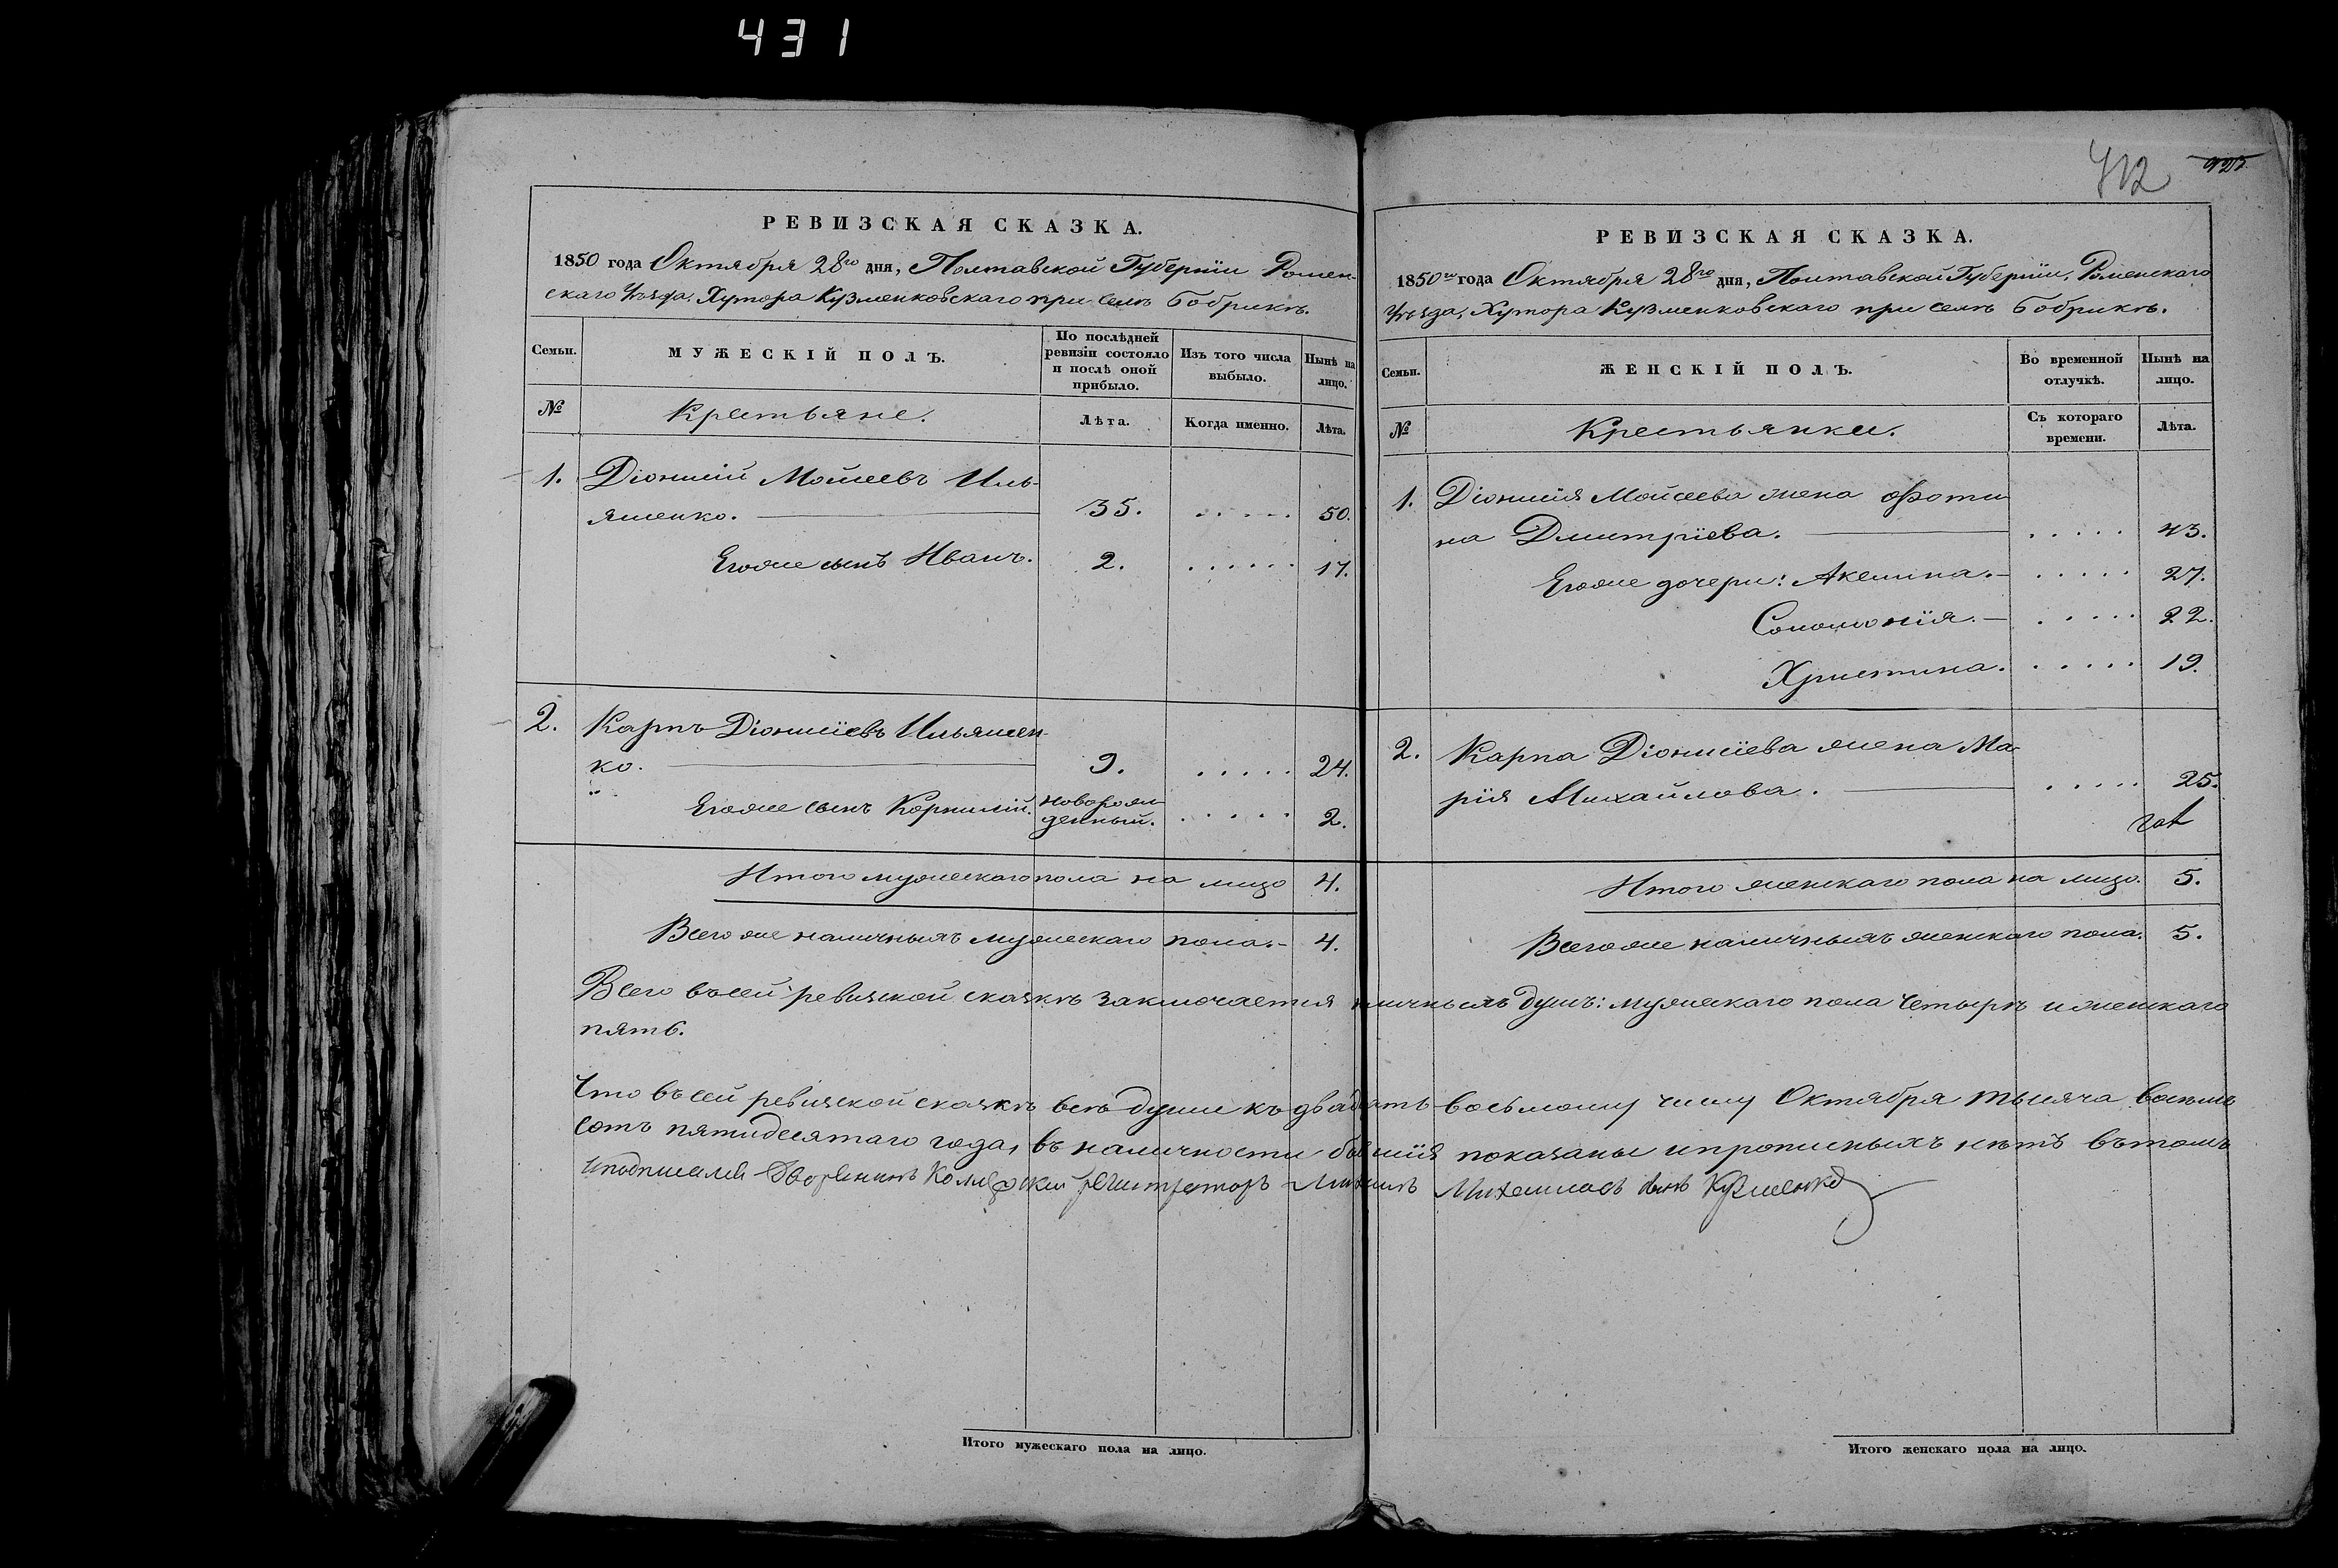 431
РЕВИЗСКАЯ СКАЗКА.
1850 года Октября 28го дня, Полтавской Губерніи Ромен-
скаго Уѣзда, Хутора Кузменковскаго при селѣ Бобрикѣ.
Семьи.
МУЖЕСКІЙ ПОЛЪ.
По послѣдней
ревизіи состояло
и послѣ оной
прибыло.
Изъ того числа
выбыло.
Нынѣ на
лицо.
№
Крестьяне.
Лѣта.
Когда именно.
Лѣта.
1. Діонисій Мойсеевъ Иль-
яшенко. 35. ..... 50.
Егоже сынъ Иванъ. 2. ...... 17.
2. Карпъ Діонисіевъ Ильяшен-
ко. 9. ..... 24.
Егоже сынъ Корнилій. новорож-
денный. ..... 2.
Итого мужескаго пола на лицо 4.
Всего же наличныхъ мужескаго пола.- 4.
412 925
РЕВИЗСКАЯ СКАЗКА.
1850го года Октября 28го дня, Полтавской Губерніи, Роменскаго
Уѣзда, Хутора Кузменковскаго при селѣ Бобрикѣ.
Семьи.
ЖЕНСКІЙ ПОЛЪ.
Во временной
отлучкѣ.
Нынѣ на
лицо.
№
Крестьянки.
Съ котораго
времени.
Лѣта.
1. Діонисія Мойсеева жена Фоти-
на Дмитріева. ..... 43.
Егоже дочери: Акелина.- ..... 27.
Соломонія.- ..... 22.
Христина. ..... 19.
2. Карпа Діонисіева жена Ма-
рія Михайлова. ..... 25.
Итого женскаго пола на лицо. 5.
Всегоже наличныхъ женскаго пола. 5.
Всего въ сей ревизской сказкѣ заключается наличныхъ душъ: мужескаго пола четырѣ и женскаго
пять.
Что въ сей ревизской сказкѣ всѣ души къ двадцать восьмому числу Октября тысяча восемь
сотъ пятидесятаго года, въ наличности бывшія показаны и прописныхъ нѣтъ въ томъ
и подписался Дворянинъ Колежский регистраторъ Михаилъ Михаиловъ сынъ Кузменко
Итого мужескаго пола на лицо.
Итого женскаго пола на лицо.